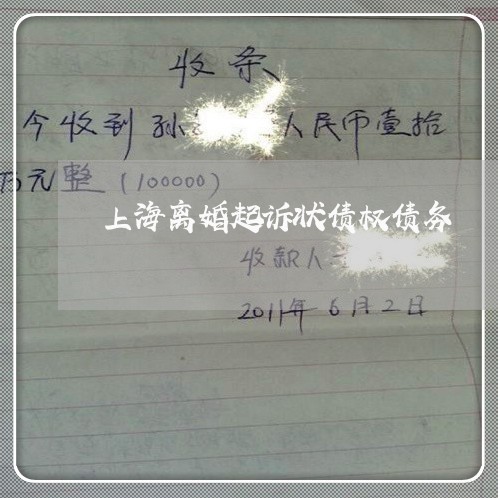 收条
今收到孙人民币壹拾
万元整(100000)
上海离婚起诉状债权债务
收款人
2011年6月2日